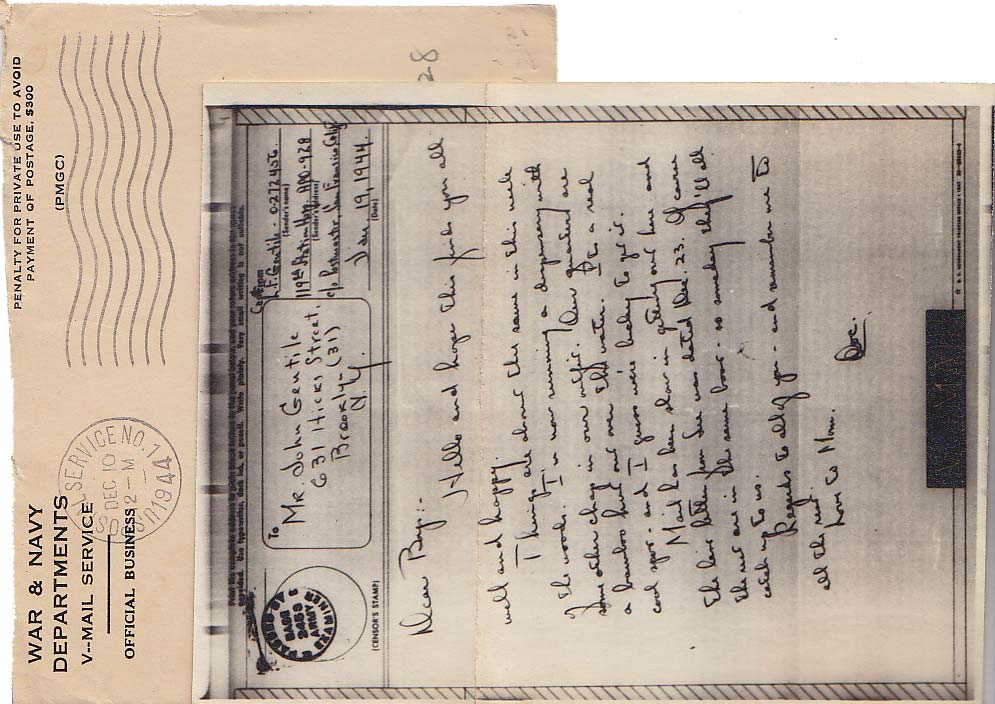 PENALTY FOR PRIVATE USE TO AVOID
PAYMENT OF POSTAGE, $300
(PMGC)
WAR & NAVY
DEPARTMENTS
V--MAIL SERVICE
OFFICIAL BUSINESS
POSTAL SERVICE NO. 1
DEC 10
12-M
1944
28
Print the complete address in plain block letters in the panel below, and your return address in the space
provided. Use typewriter, dark ink, or pencil. Write plainly. Very small writing is not suitable.
To
Mr. John Gentile
631 Hicks Street.
Brooklyn-(31)
N.Y.
From
Gentile - 0-272456
(Sender's name)
119th Station Hosp APO-928
(Sender's address)
c/o Postmaster, San Francisco, Calif
Jan. 19, 1944.
(Date)
PASSED BY
BASE
2453
ARMY
EXAMINER
(CENSOR'S STAMP)
Dear Ray:-
Hello and hope this finds you all
well and happy.
Things are about the same in this neck
of the woods. I'm now running a dispensary with
some other chap in our outfit. Our quarters are
a bamboo hut out over the water. It's a real
cool spot - and I guess we're lucky to get it.
Mail has been slow in getting out here and
the last letter from you was dated Dec. 23. Of course
there are in the same boat - so someday they'll all
catch up to us.
Regards to all of you - and remember me to
all the rest.
Love to Mom.
Doc.
V-MAIL